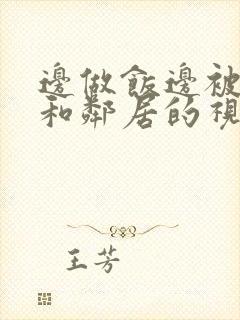 邊做飯邊被
和鄰居的視
王芳